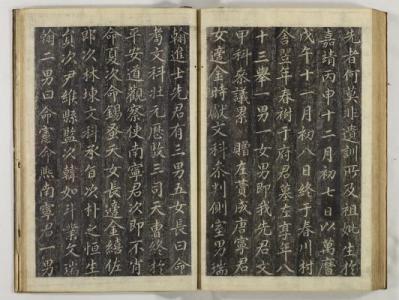 先者何莫非遺訓所及祖妣生於
嘉靖丙申十二月初七日以萬曆
戊午十一月初八日終于春川村
舍翌年春祔于府君墓左享年八
十三擧一男一女男卽我先君文
甲科參議累贈左贊成唐寧君
女適金時獻文科參判側室男瑞
翰進士先君有三男五女長曰命
考文科壯元歷敭三司天曹終於
平安道觀察使南寧君次卽不肖
命夏次命錫丞天女長適金縉佐
郎次林埬文科承旨次朴之恒生
員次尹維縣監次韓如斗蚤欠瑞
翰二男曰命憲命熊南寧君一男